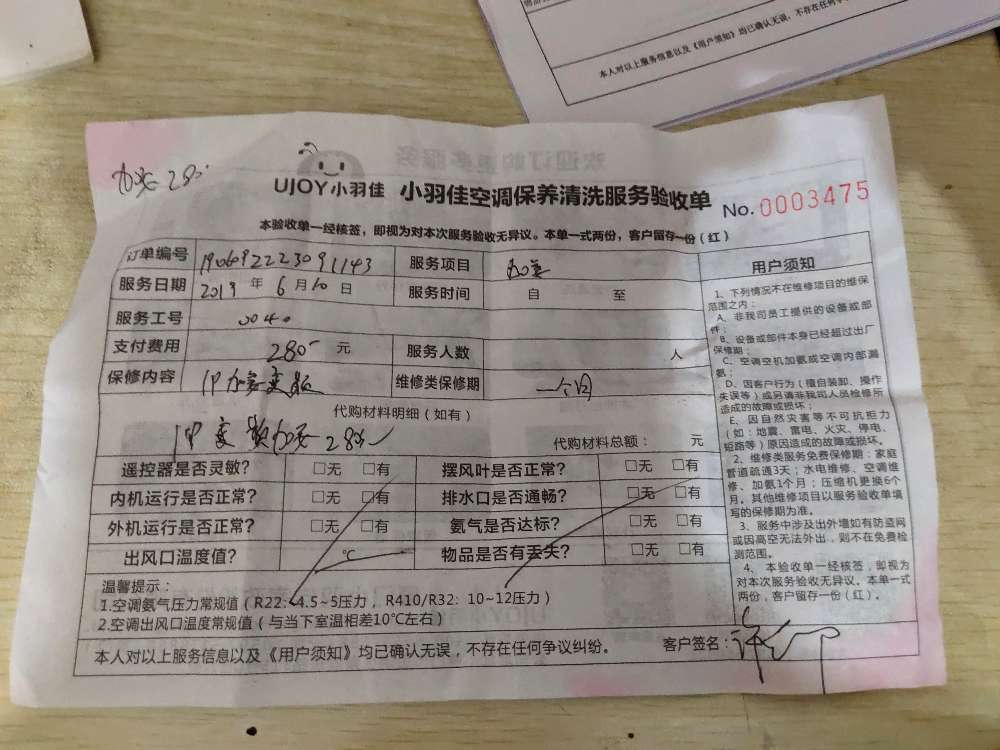 本人对以上服务信息以及《用户须知》均已确认无误,不存在任何
280
UJOY小羽佳 小羽佳空调保养清洗服务验收单 No.0003475
本验收单一经核签,即视为对本次服务验收无异议。本单一式两份,客户留存一份(红)
订单编号 服务项目
服务日期 2019 年 6 月 10 日 服务时间 自 至
服务工号
支付费用 280 元 服务人数 人
保修内容 维修类保修期 一个月
代购材料明细(如有)
代购材料总额: 元
遥控器是否灵敏? □无 □有 摆风叶是否正常? □无 □有
内机运行是否正常? □无 □有 排水口是否通畅? □无 □有
外机运行是否正常? □无 □有 氨气是否达标? □无 □有
出风口温度值? ℃ 物品是否有丢失? □无 □有
温馨提示:
1.空调氨气压力常规值(R22:4.5~5压力,R410/R32:10~12压力)
2.空调出风口温度常规值(与当下室温相差10℃左右)
本人对以上服务信息以及《用户须知》均已确认无误,不存在任何争议纠纷。 客户签名:
用户须知
1、下列情况不在维修项目的维保
范围之内:
A、非我司员工提供的设备或部
件;
B、设备或部件本身已经超过出厂
保修期;
C、空调空机加氨或空调内部漏
氨;
D、因客户行为(擅自装卸、操作
失误等)或另请非我司人员检修所
造成的故障或损坏;
E、因自然灾害等不可抗拒力
(如:地震、雷电、火灾、停电、
短路等)原因造成的故障或损坏。
2、维修类服务免费保修期:家庭
管道疏通3天;水电维修、空调维
修、加氨1个月;压缩机更换6个
月。其他维修项目以服务验收单填
写的保修期为准。
3、服务中涉及出外墙如有防盗网
或因高空无法外出,则不在免费检
测范围。
4、本验收单一经核签,即视为
对本次服务验收无异议。本单一式
两份,客户留存一份(红)。